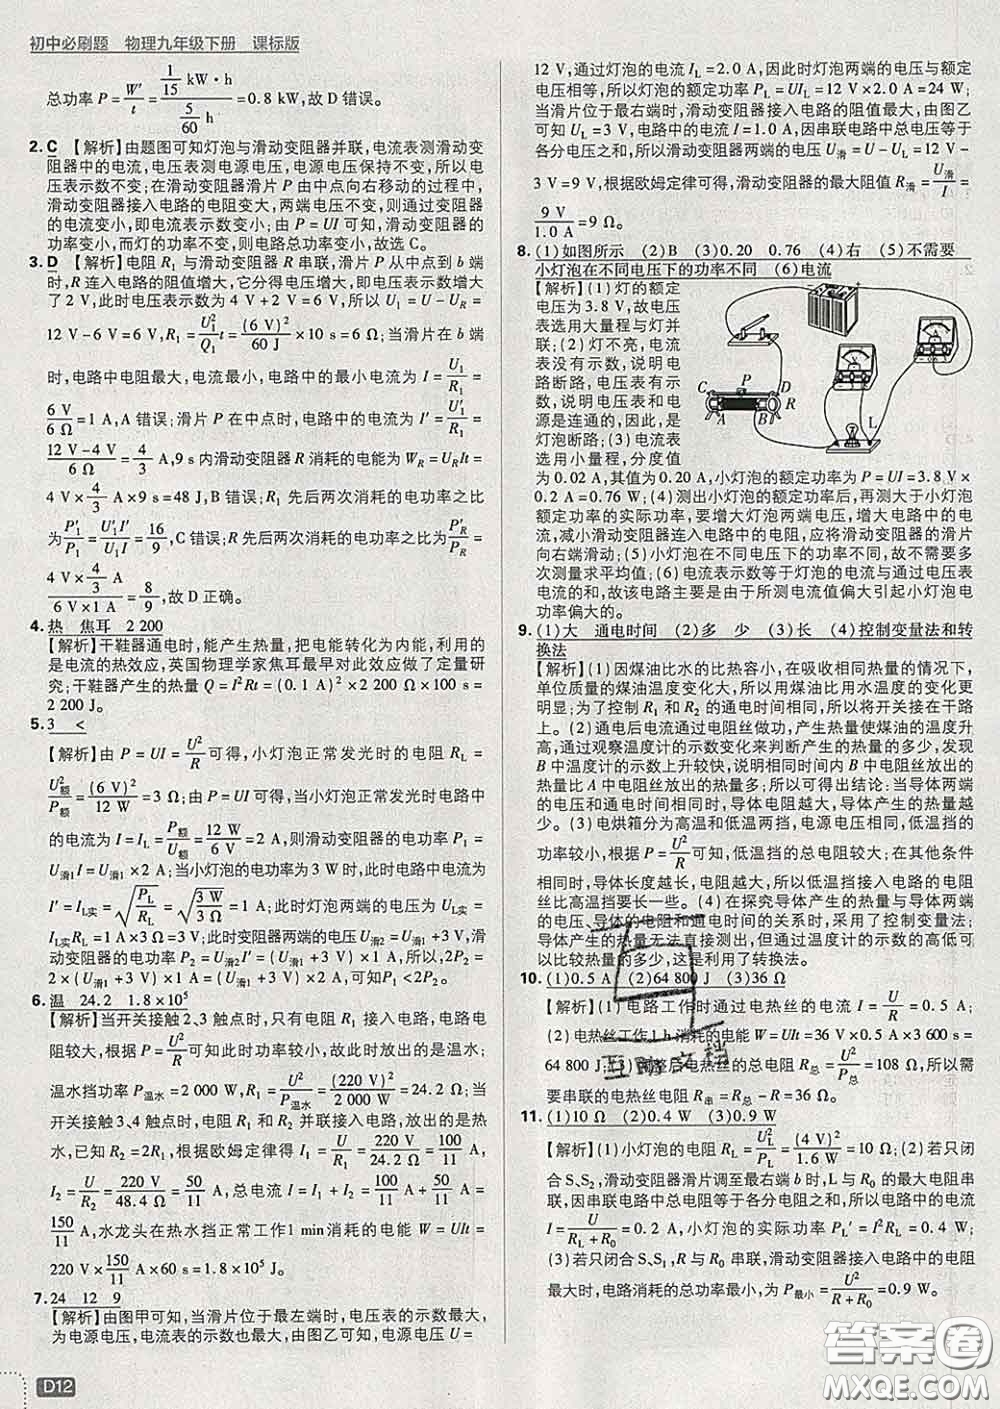 初中必刷题 物理九年级下册 课标版
总功率 P = W′/t = (1/15 kW·h)/(5/60 h) = 0.8 kW,故 D 错误。
2. C 【解析】由题图可知灯泡与滑动变阻器并联,电流表测滑动变
阻器中的电流,电压表测电源电压,电源电压保持不变,所以电
压表示数不变;在滑动变阻器滑片 P 由中点向右移动的过程中,
滑动变阻器接入电路的电阻变大,两端电压不变,则通过变阻器
的电流变小,即电流表示数变小;由 P = UI 可知,滑动变阻器的
功率变小,而灯的功率不变,则电路总功率变小,故选 C。
3. D 【解析】电阻 R₁ 与滑动变阻器 R 串联,滑片 P 从中点到 b 端
时,R 连入电路的阻值增大,它分得电压增大,即电压表示数增大
了 2 V,此时电压表示数为 4 V + 2 V = 6 V,所以 U₁ = U − U_R =
12 V − 6 V = 6 V,R₁ = U₁²/Q₁ t = (6 V)²/60 J × 10 s = 6 Ω;当滑片在 b 端
时,电路中电阻最大,电流最小,电路中的最小电流为 I = U₁/R₁ =
6 V/6 Ω = 1 A,A 错误;滑片 P 在中点时,电路中的电流为 I′ = U′₁/R₁ =
(12 V − 4 V)/6 Ω = 4/3 A,9 s 内滑动变阻器 R 消耗的电能为 W_R = U_R It =
4 V × 4/3 A × 9 s = 48 J,B 错误;R₁ 先后两次消耗的电功率之比
为 P′₁/P₁ = U′₁I′/U₁I = 16/9,C 错误;R 先后两次消耗的电功率之比 P′_R/P_R =
(4 V × 4/3 A)/(6 V × 1 A) = 8/9,故 D 正确。
4. 热 焦耳 2 200
【解析】干鞋器通电时,能产生热量,把电能转化为内能,利用的
是电流的热效应,英国物理学家焦耳最早对此效应做了定量研
究;干鞋器产生的热量 Q = I²Rt = (0.1 A)² × 2 200 Ω × 100 s =
2 200 J。
5. 3 <
【解析】由 P = UI = U²/R 可得,小灯泡正常发光时的电阻 R_L =
U额²/P额 = (6 V)²/12 W = 3 Ω;由 P = UI 可得,当小灯泡正常发光时电路中
的电流为 I = I_L = P额/U额 = 12 W/6 V = 2 A,则滑动变阻器的电功率 P₁ =
U滑1 I = U滑1 × 2 A;当小灯泡的功率为 3 W 时,此时电路中电流
I′ = I_L实 = √(P_L/R_L) = √(3 W/3 Ω) = 1 A;此时灯泡两端的电压为 U_L实 =
I_L实 R_L = 1 A × 3 Ω = 3 V;此时变阻器两端的电压 U滑2 = U滑1 + 3 V,滑
动变阻器的电功率 P₂ = U滑2 I′ = (U滑1 + 3 V) × 1 A,所以 2P₂ =
2 × (U滑1 + 3 V) × 1 A = 2 × (U滑1 + 3 V) × 1 A,故可知 P₁ < 2P₂。
6. 温 24.2 1.8 × 10⁵
【解析】当开关接触2、3 触点时,只有电阻 R₁ 接入电路,电路电
阻较大,根据 P = U²/R 可知此时功率较小,故此时放出的是温水;
温水挡功率 P温水 = 2 000 W,R₁ = U²/P温水 = (220 V)²/2 000 W = 24.2 Ω;当
开关接触3、4 触点时,电阻 R₁ 和 R₂ 并联接入电路,放出的是热
水,已知 R₂ = 2R₁,根据欧姆定律得 I₁ = U/R₁ = 220 V/24.2 Ω = 100/11 A,
I₂ = U/R₂ = 220 V/48.4 Ω = 50/11 A,总电流 I = I₁ + I₂ = 100/11 A + 50/11 A =
150/11 A,水龙头在热水挡正常工作1 min消耗的电能 W = UIt =
220 V × 150/11 A × 60 s = 1.8 × 10⁵ J。
7. 24 12 9
【解析】由图甲可知,当滑片位于最左端时,电压表的示数最大,
为电源电压,电流表的示数也最大,由图乙可知,电源电压 U =
12 V,通过灯泡的电流 I_L = 2.0 A,因此时灯泡两端的电压与额定
电压相等,所以灯泡的额定功率 P_L = UI_L = 12 V × 2.0 A = 24 W;
当滑片位于最右端时,滑动变阻器接入电路的阻值最大,由图乙
可知 U_L = 3 V,电路中的电流 I = 1.0 A,因串联电路中总电压等于
各分电压之和,所以滑动变阻器两端的电压 U滑 = U − U_L = 12 V −
3 V = 9 V,根据欧姆定律可得,滑动变阻器的最大阻值 R滑 = U滑/I =
9 V/1.0 A = 9 Ω。
8. (1)如图所示 (2)B (3)0.20 0.76 (4)右 (5)不需要
小灯泡在不同电压下的功率不同 (6)电流
【解析】(1)灯的额定
电压为 3.8 V,故电压
表选用大量程与灯并
联;(2)灯不亮,电流
表没有示数,说明电
路断路,电压表有示
数,说明电压表和电
源是连通的,因此,是
灯泡断路;(3)电流表
选用小量程,分度值
为 0.02 A,其值为 0.20 A,小灯泡的额定功率为 P = UI = 3.8 V ×
0.2 A = 0.76 W;(4)测出小灯泡的额定功率后,再测大于小灯泡
额定功率的实际功率,要增大灯泡两端电压,增大电路中的电
流,减小滑动变阻器连入电路中的电阻,应将滑动变阻器的滑片
向右端滑动;(5)小灯泡在不同电压下的功率不同,故不需要多
次测量求平均值;(6)电流表示数等于灯泡的电流与通过电压表
电流的和,故该电路主要是由于所测电流值偏大引起小灯泡电
功率偏大的。
C P D R A B L
9. (1)大 通电时间 (2)多 少 (3)长 (4)控制变量法和转
换法
【解析】(1)因煤油比水的比热容小,在吸收相同热量的情况下,
单位质量的煤油温度变化大,所以用煤油比用水温度的变化更
明显;为了控制 R₁ 和 R₂ 的通电时间相同,所以将开关接在干路
上。(2)通电后电流通过电阻丝做功,产生热量使煤油的温度升
高,通过观察温度计的示数变化来判断产生的热量的多少,发现
B 中温度计的示数上升较快,说明烧瓶 B 中电阻丝放出的热量
比 A 中电阻丝放出的热量多;所以可得出结论:当导体两端的
电压和通电时间相同时,导体电阻越大,导体产生的热量越
少。(3)电烘箱分为高温和低温两挡,电源电压相同,低温挡的
功率较小,根据 P = U²/R 可知,低温挡的总电阻较大;在其他条件
相同时,导体长度越长,电阻越大,所以低温挡接入电路的电阻
丝比高温挡要长一些。(4)在探究导体产生的热量与导体两端
的电压、导体的电阻和通电时间的关系时,采用了控制变量法;
导体产生的热量无法直接测出,但通过温度计的示数的高低可
以比较热量的多少,这是利用了转换法。
10. (1)0.5 A (2)64 800 J (3)36 Ω
【解析】(1)电路工作时通过电热丝的电流 I = U/R = 0.5 A;
(2)电热丝工作 1 h 消耗的电能 W = UIt = 36 V × 0.5 A × 3 600 s =
64 800 J;(3)调整后电热丝的总电阻 R总 = U²/P总 = 108 Ω,所以需
要串联的电热丝电阻 R串 = R总 − R = 36 Ω。
11. (1)10 Ω (2)0.4 W (3)0.9 W
【解析】(1)小灯泡的电阻 R_L = U_L²/P_L = (4 V)²/1.6 W = 10 Ω;(2)若只闭
合 S、S₂,滑动变阻器滑片调至最右端 b 时,L 与 R₀ 的最大电阻串
联,因串联电路中总电阻等于各分电阻之和,所以电路中的电流
I = U/(R_L + R₀) = 0.2 A,小灯泡的实际功率 P_L′ = I²R_L = 0.4 W;
(3)若只闭合 S、S₁,R 与 R₀ 串联,滑动变阻器接入电路中的电阻
最大时,电路消耗的总功率最小,为 P最小 = U²/(R + R₀) = 0.9 W。
D12
答案圈
MXQE.COM